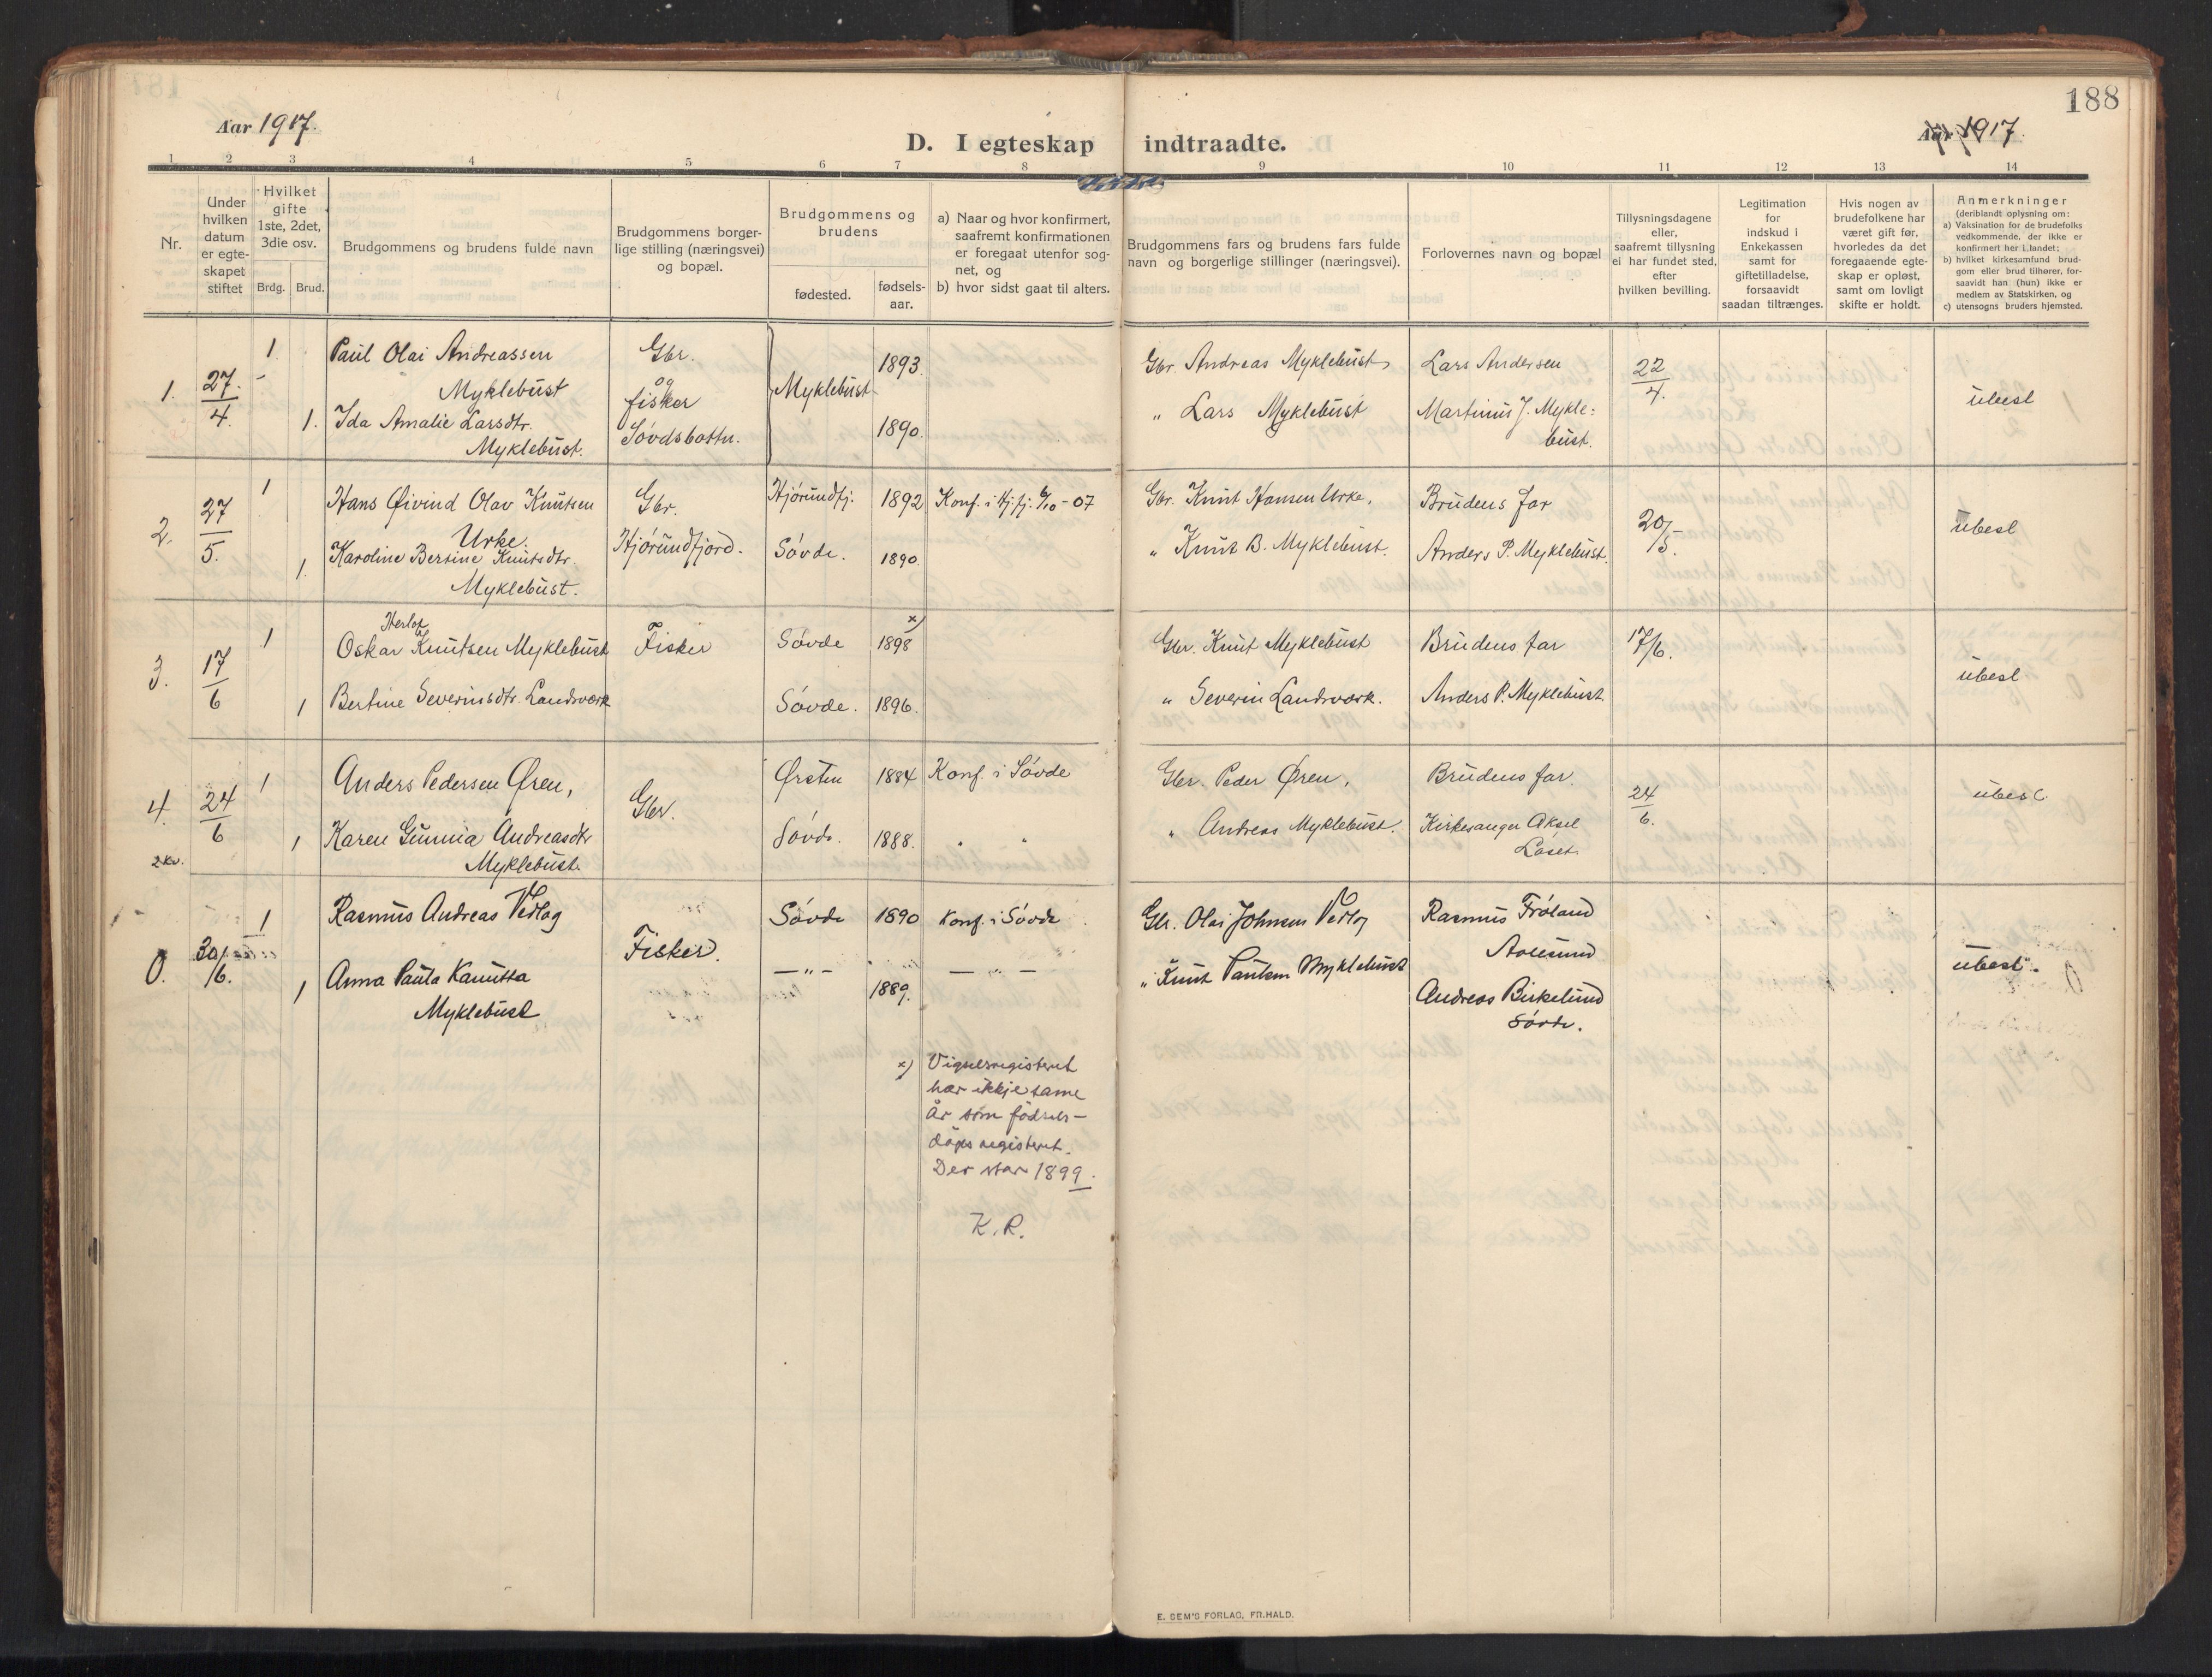 188
Aar 1917.
Aar 1917.
D. I egteskap indtraadte.
1 2 3 4 5 6 7 8 9 10 11 12 13 14
Nr.
Under
hvilken
datum
er egte-
skapet
stiftet
Hvilket
gifte
1ste, 2det,
3die osv.
Brdg. Brud.
Brudgommens og brudens fulde navn
Brudgommens borger-
lige stilling (næringsvei)
og bopæl.
Brudgommens og
brudens
fødested.
fødsels-
aar.
a) Naar og hvor konfirmert,
saafremt konfirmationen
er foregaat utenfor sog-
net, og
b) hvor sidst gaat til alters.
Brudgommens fars og brudens fars fulde
navn og borgerlige stillinger (næringsvei).
Forlovernes navn og bopæl
Tillysningsdagene
eller,
saafremt tillysning
ei har fundet sted,
efter
hvilken bevilling.
Legitimation
for
indskud i
Enkekassen
samt for
giftetilladelse,
forsaavidt
saadan tiltrænges.
Hvis nogen av
brudefolkene har
været gift før,
hvorledes da det
foregaaende egte-
skap er opløst,
samt om lovligt
skifte er holdt.
Anmerkninger
(deriblandt oplysning om:
a) Vaksination for de brudefolks
vedkommende, der ikke er
konfirmert her i landet;
b) hvilket kirkesamfund brud-
gom eller brud tilhører, for-
saavidt han (hun) ikke er
medlem av Statskirken, og
c) utensogns bruders hjemsted.
1. 27/4. 1 1.
Paul Olai Andreassen
Myklebust
Ida Amalie Larsdtr.
Myklebust.
Gbr.
og
fisker
Søvdsbottn.
Myklebust
1893.
1890.
Gbr. Andreas Myklebust,
" Lars Myklebust
Lars Andersen
Martinus J. Mykle:
bust.
22/4.
ubesl
2. 27/5. 1 1.
Hans Øivind Olav Knutsen
Urke.
Karoline Bersine Knutsdtr.
Myklebust.
Gbr.
Hjørundfjord.
Hjørundfj. 1892 Konf. i Hj.fj. 6/10 - 07
Søvde. 1890.
Gbr. Knut Hansen Urke,
" Knut B. Myklebust.
Brudens far
Anders P. Myklebust.
20/5.
ubesl
3. 17/6 1 1
Herlof
Oskar Knutsen Myklebust
Bertine Severinsdtr. Landsværk
Fisker
x)
Søvde 1898
Søvde. 1896.
Gbr. Knut Myklebust
" Severin Landsværk.
Brudens far
Anders P. Myklebust.
17/6.
ubesl
4. 24/6 1 1
2 kv.
Anders Pedersen Øren,
Karen Gunnia Andreasdtr
Myklebust.
Gbr.
Ørsten 1884 Konf. i Søvde
Søvde. 1888. " "
Gbr. Peder Øren,
" Andreas Myklebust.
Brudens far.
Kirkesanger Aksel
Løset.
24/6.
ubesl
0. 30/6. 1 1
Rasmus Andreas Vedlog
Anna Paula Kanutta
Myklebust
Fisker.
Søvde 1890 Konf. i Søvde
— " — 1889. — " —
Gbr. Olai Johnsen Vedlog
" Knut Paulsen Myklebust
Rasmus Frøland
Aalesund
Andreas Birkelund
Søvde.
ubesl.
x) Vigselsregisteret
har ikkje same
år som fødsels-
dåpsregisteret.
Der står 1899.
K. R.
E. SEM'S FORLAG, FR.HALD.